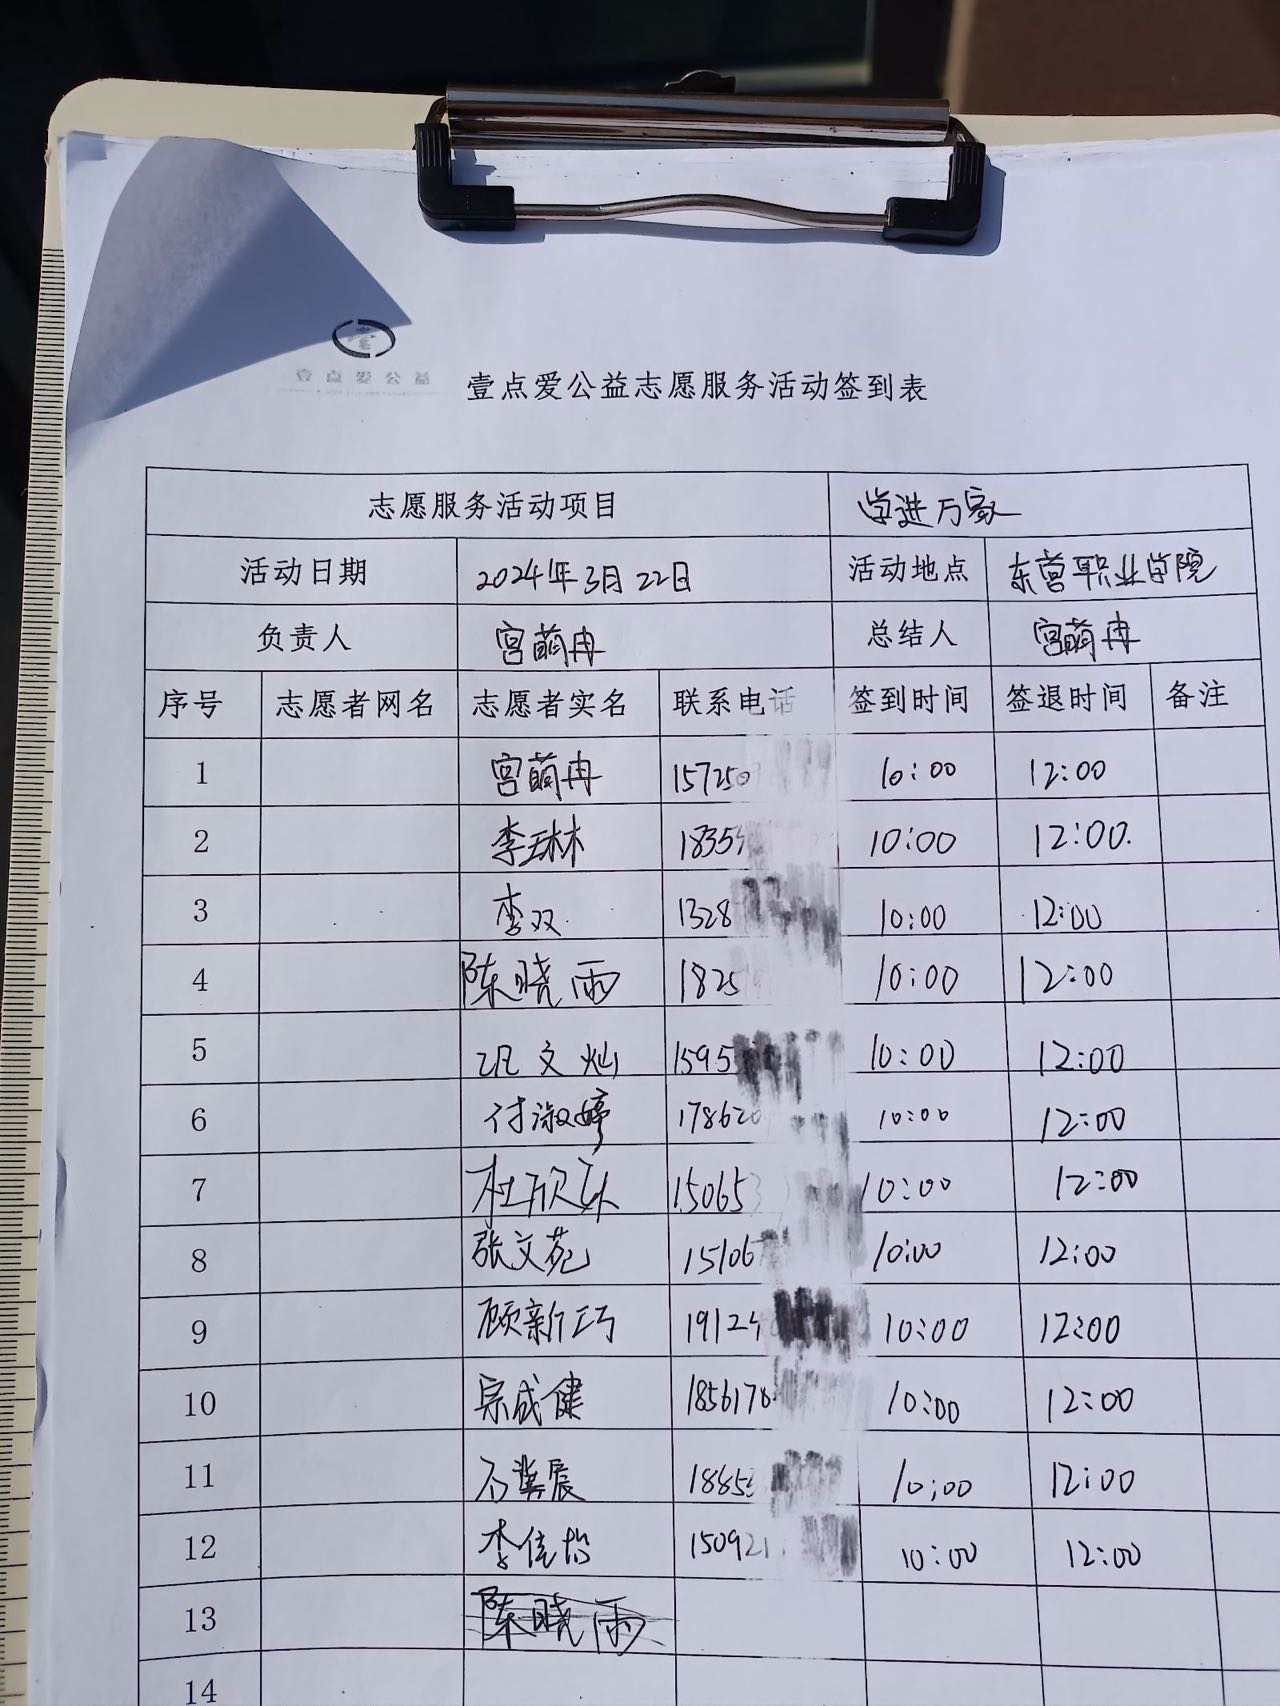 壹点爱公益
壹点爱公益志愿服务活动签到表
志愿服务活动项目 学进万家
活动日期 2024年3月22日 活动地点 东营职业学院
负责人 宫萌冉 总结人 宫萌冉
序号 志愿者网名 志愿者实名 联系电话 签到时间 签退时间 备注
1 宫萌冉 157250 10:00 12:00
2 李琳林 1835 10:00 12:00.
3 李双 1328 10:00 12:00
4 陈晓雨 1825 10:00 12:00
5 巩文灿 1595 10:00 12:00
6 付淑婷 178620 10:00 12:00
7 15065 10:00 12:00
8 张文苑 15106 10:00 12:00
9 顾新巧 19124 10:00 12:00
10 宗成健 185617 10:00 12:00
11 1885 10:00 12:00
12 李佳怡 15092 10:00 12:00
13 陈晓雨
14